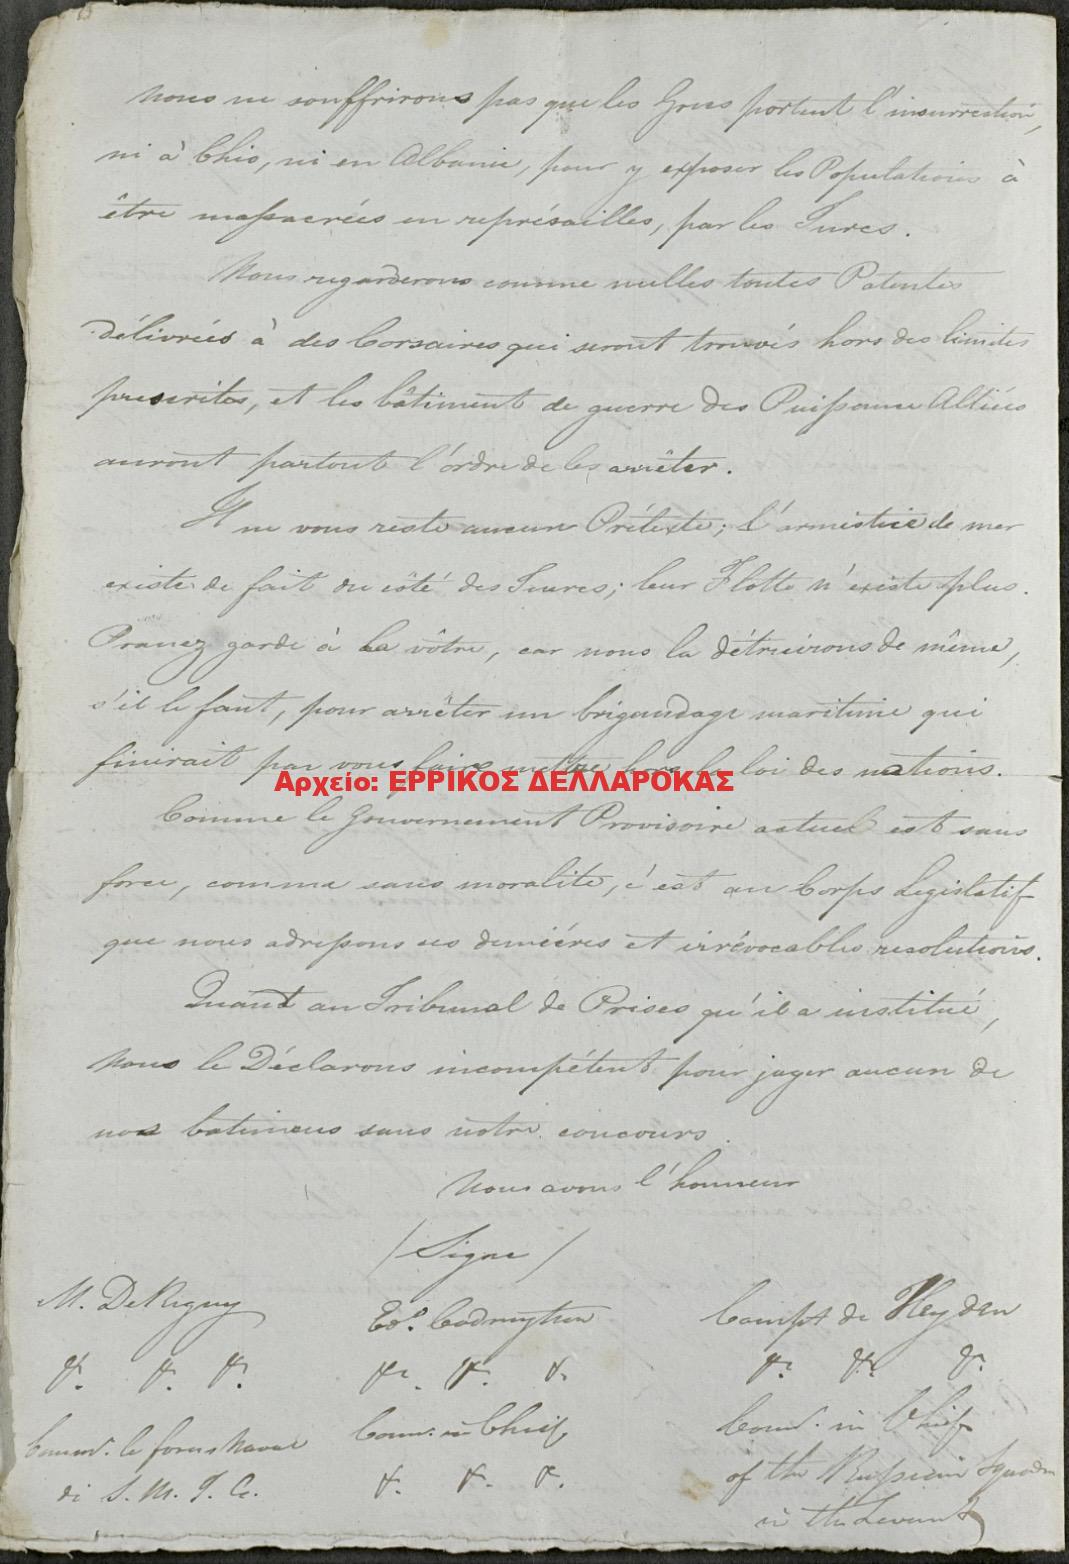 Nous ne souffrirons pas que les Grecs portent l'insurrection,
ni à Chio, ni en Albanie, pour y exposer les Populations à
être massacrées en représailles, par les Turcs.
Nous regarderons comme nulles toutes Patentes
délivrées à des Corsaires qui seront trouvés hors des limites
prescrites, et les bâtiment de guerre des Puissance Alliées
auront partout l'ordre de les arrêter.
Il ne vous reste aucun Prétexte; l'armistice de mer
existe de fait du côté des Turcs; leur Flotte n'existe plus.
Prenez garde à la vôtre, car nous la détruirons de même,
s'il le faut, pour arrêter un brigandage maritime qui
finirait par vous faire mettre hors la loi des nations.
Αρχείο: ΕΡΡΙΚΟΣ ΔΕΛΛΑΡΟΚΑΣ
Comme le Gouvernement Provisoire actuel est sans
force, comme sans moralité, c'est au Corps Legislatif
que nous adressons ces derniéres et irrévocables resolutions.
Quant au Tribunal de Prises qu'il a institué,
Nous le Déclarons incompétent pour juger aucun de
nos batimens sans notre concours.
Nous avons l'honneur
/ Signe /
M. De Rigny Ed. Codrington Compt de Heyden
&. &. &. &. &. &. &. &. &.
Comm. le forces Naval Com. in Chief Com. in Chief
di S. M. T. C. &. &. &. of the Russian Squadn
in the Levant